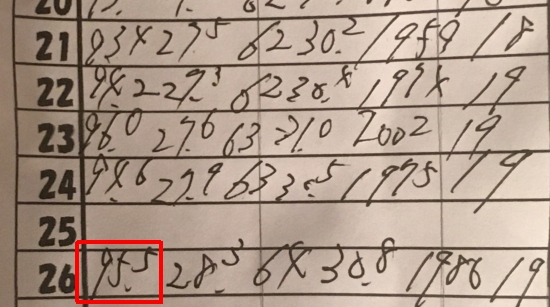 21 93.4 27.5 62 30.2 1959 18
22 94.2 27.3 62 30.4 1974 19
23 96.0 27.6 63 31.0 2002 19
24 94.6 27.9 63 30.5 1975 19
25
26 95.5 28.3 64 30.8 1986 19